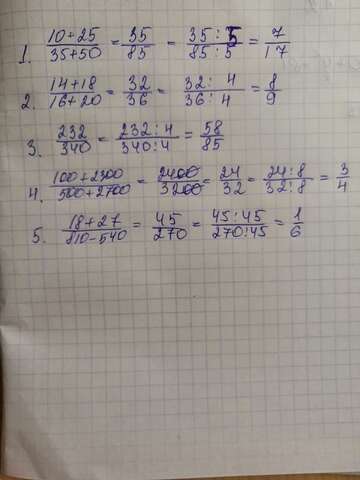 1. (10+25)/(35+50) = 35/85 = (35:5)/(85:5) = 7/17
2. (14+18)/(16+20) = 32/36 = (32:4)/(36:4) = 8/9
3. 232/340 = (232:4)/(340:4) = 58/85
4. (100+2300)/(500+2700) = 2400/3200 = 24/32 = (24:8)/(32:8) = 3/4
5. (18+27)/(810-540) = 45/270 = (45:45)/(270:45) = 1/6